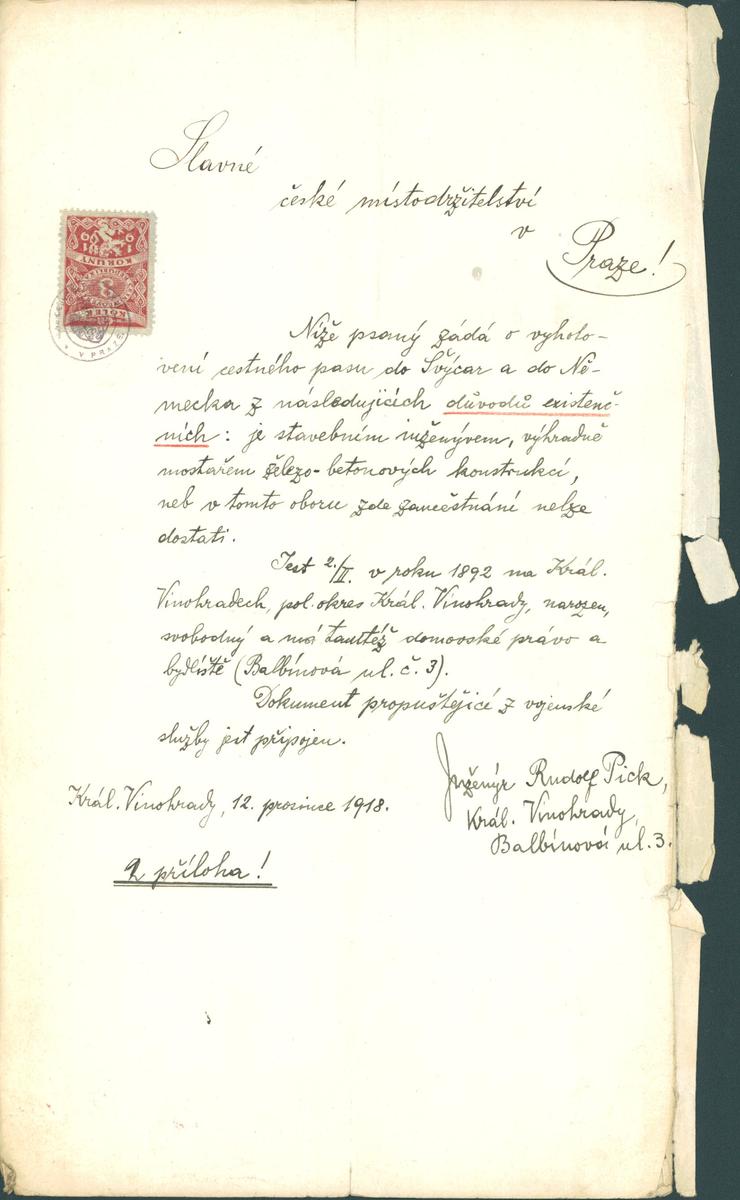 Slavné
české místodržitelství
v
Praze!
Níže psaný žádá o vyhoto-
vení cestného pasu do Švýcar a do Ně-
mecka z následujících důvodů existenč-
ních: je stavebním inženýrem, výhradně
mostařem železo-betonových konstrukcí,
neb v tomto oboru zde zaměstnání nelze
dostati.
Jest 2./II. v roku 1892 na Král.
Vinohradech, pol. okres Král. Vinohrady, narozen,
svobodný a má tamtéž domovské právo a
bydliště (Balbínová ul. č. 3).
Dokument propuštějící z vojenské
služby jest připojen.
Inženýr Rudolf Pick,
Král. Vinohrady,
Balbínová ul. 3.
Král. Vinohrady, 12. prosince 1918.
2 příloha!
1919
KORUNY
3
KOLEK
V PRAZE